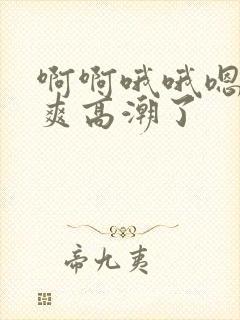 啊啊哦哦嗯
爽高潮了
帝九夷